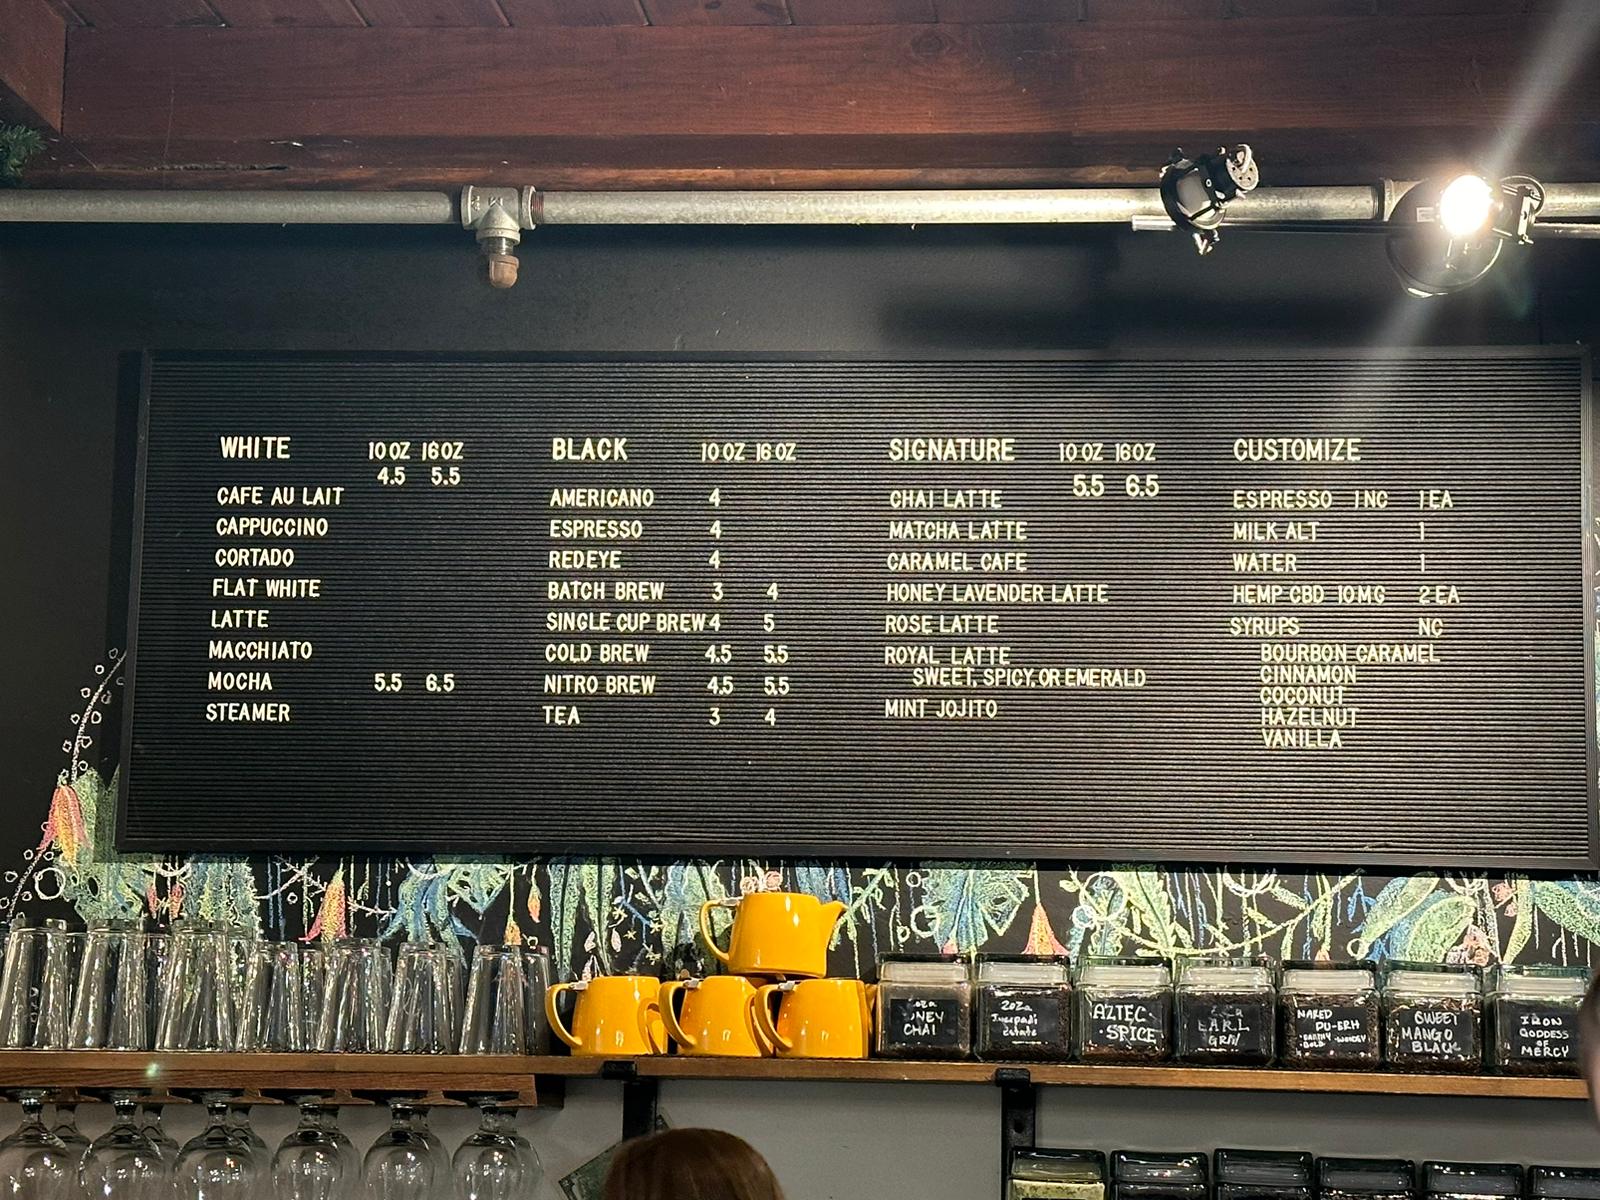 WHITE 10 OZ 16 OZ
4.5 5.5
CAFE AU LAIT
CAPPUCCINO
CORTADO
FLAT WHITE
LATTE
MACCHIATO
MOCHA 5.5 6.5
STEAMER
BLACK 10 OZ 16 OZ
AMERICANO 4
ESPRESSO 4
REDEYE 4
BATCH BREW 3 4
SINGLE CUP BREW 4 5
COLD BREW 4.5 5.5
NITRO BREW 4.5 5.5
TEA 3 4
SIGNATURE 10 OZ 16 OZ
5.5 6.5
CHAI LATTE
MATCHA LATTE
CARAMEL CAFE
HONEY LAVENDER LATTE
ROSE LATTE
ROYAL LATTE
SWEET, SPICY, OR EMERALD
MINT JOJITO
CUSTOMIZE
ESPRESSO 1 NC 1 EA
MILK ALT 1
WATER 1
HEMP CBD 10MG 2 EA
SYRUPS NC
BOURBON CARAMEL
CINNAMON
COCONUT
HAZELNUT
VANILLA
CHAI
Zoza
Estate
AZTEC
SPICE
EARL
GREY
NAKED
PU-ERH
SWEET
MANGO
BLACK
IRON
GODDESS
OF
MERCY